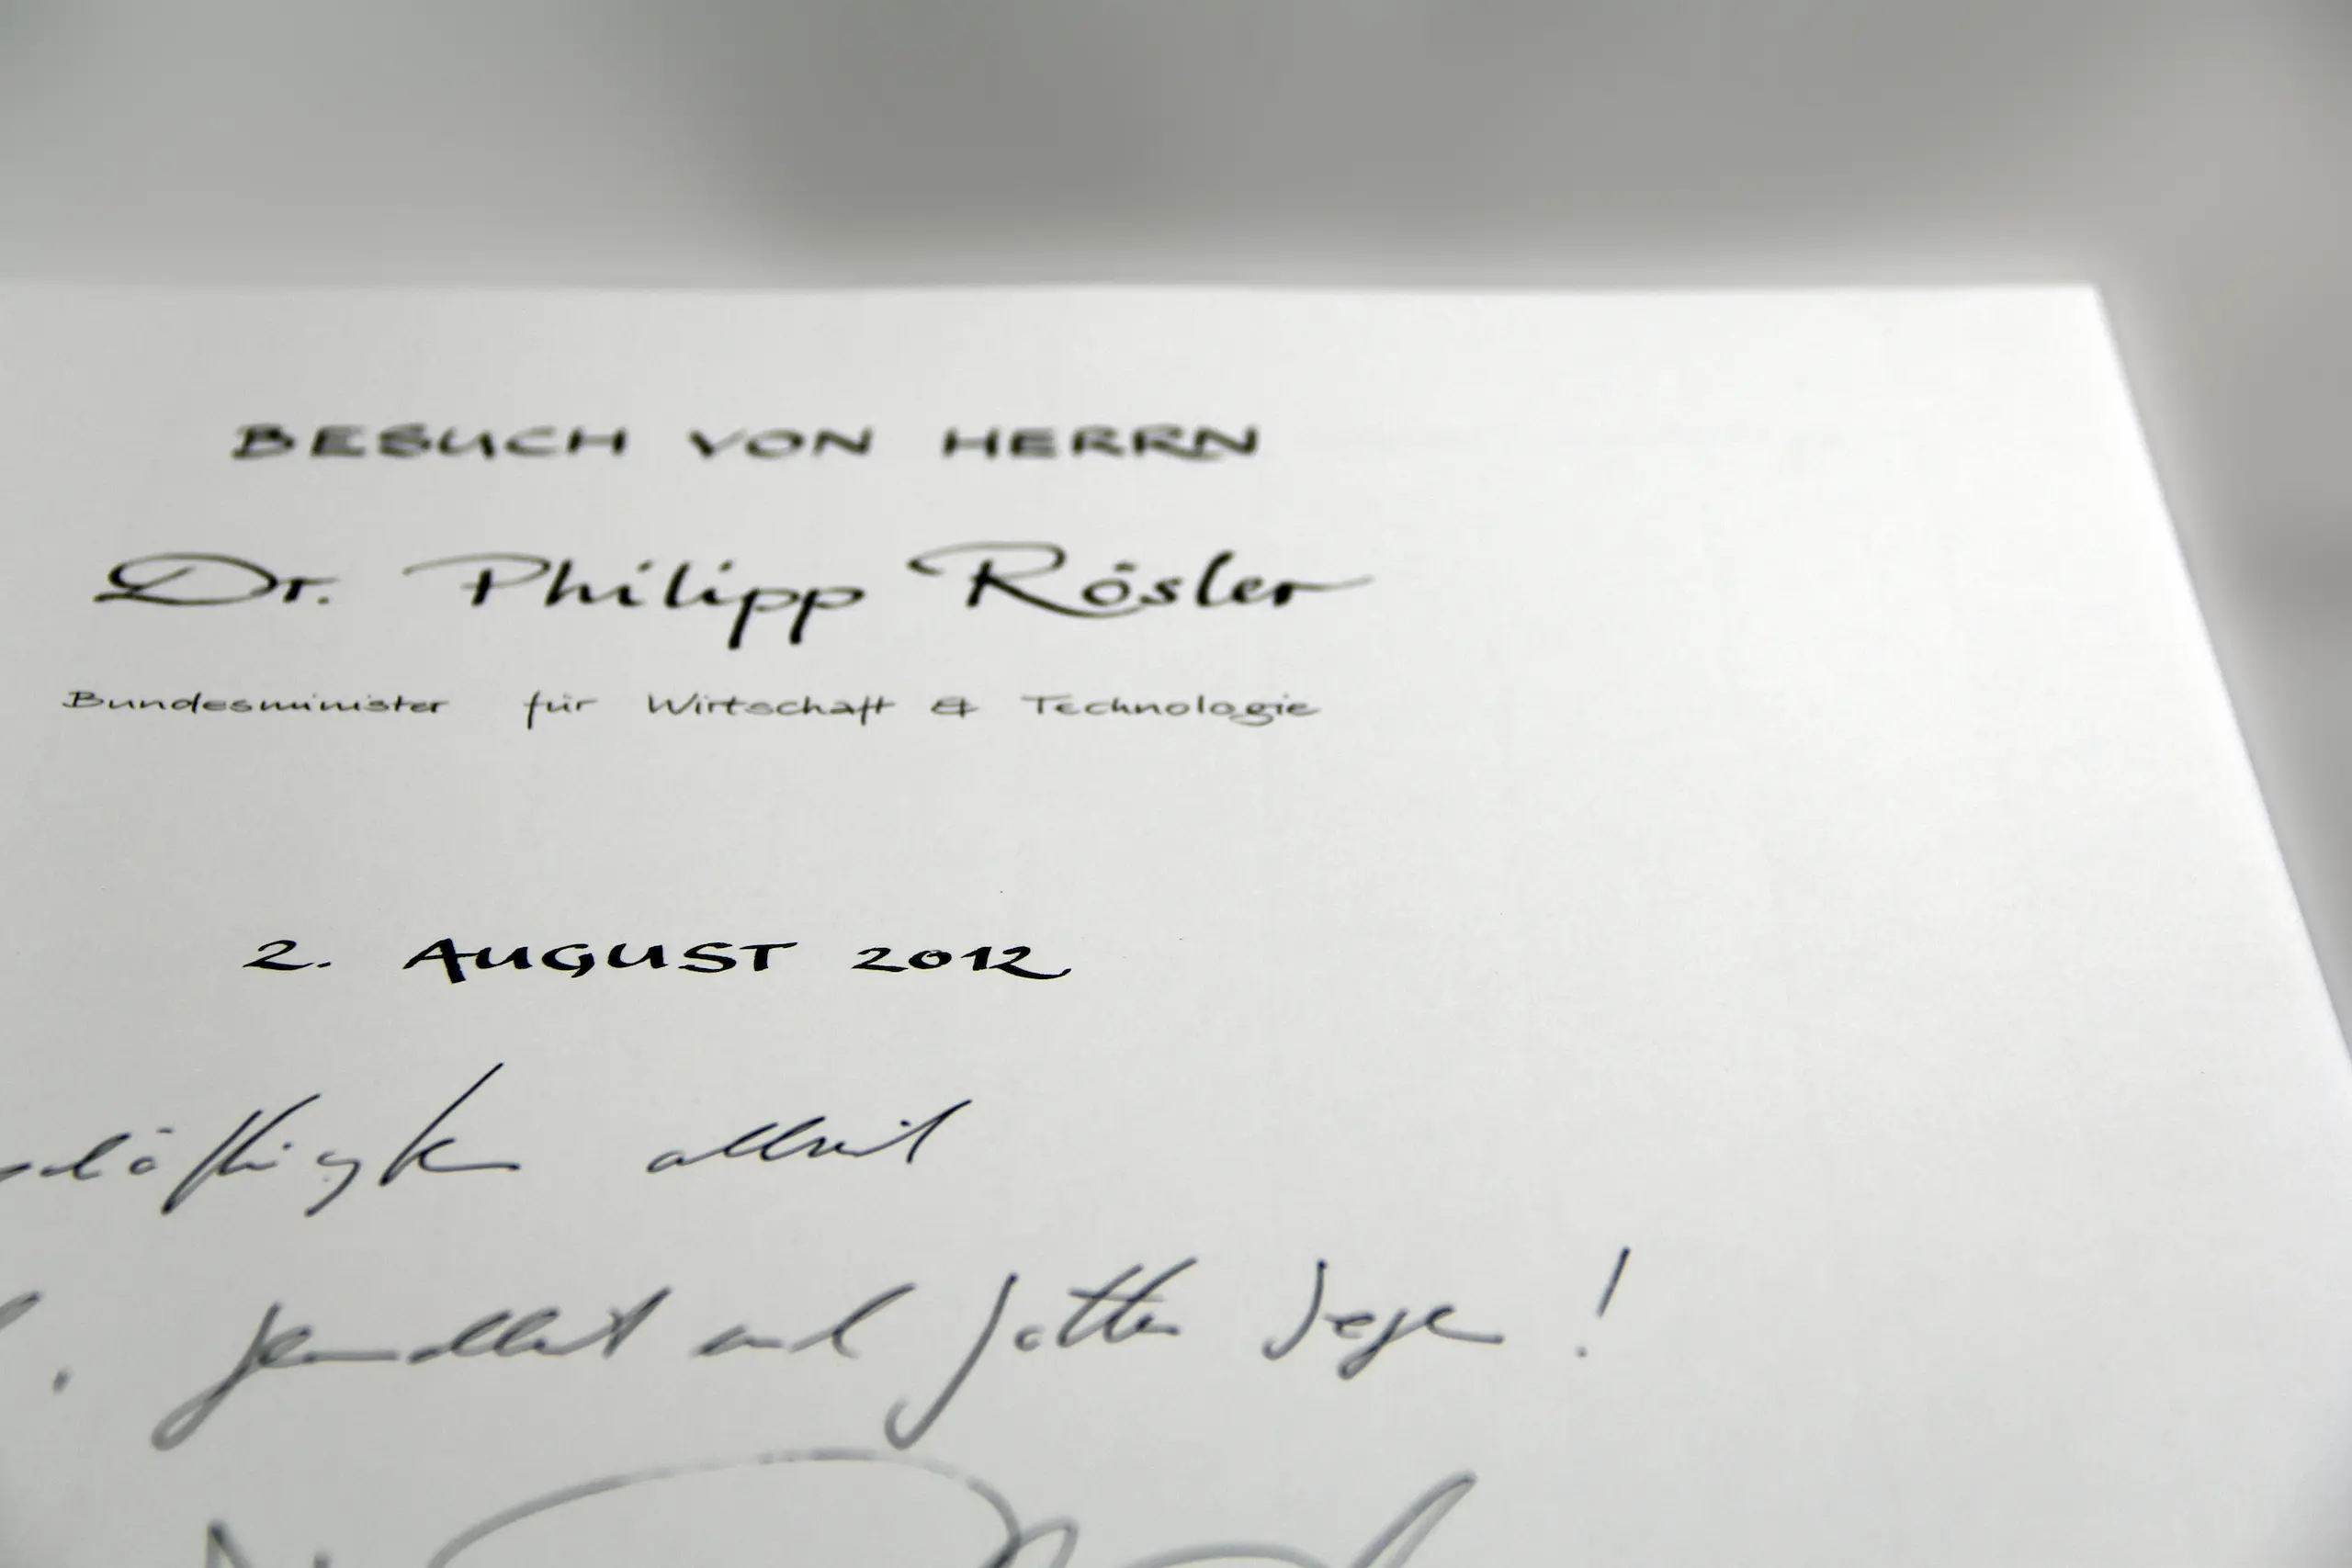 BESUCH VON HERRN
Dr. Philipp Rösler
Bundesminister für Wirtschaft & Technologie
2. AUGUST 2012
allzeit
, Gesundheit und Gottes Segen!